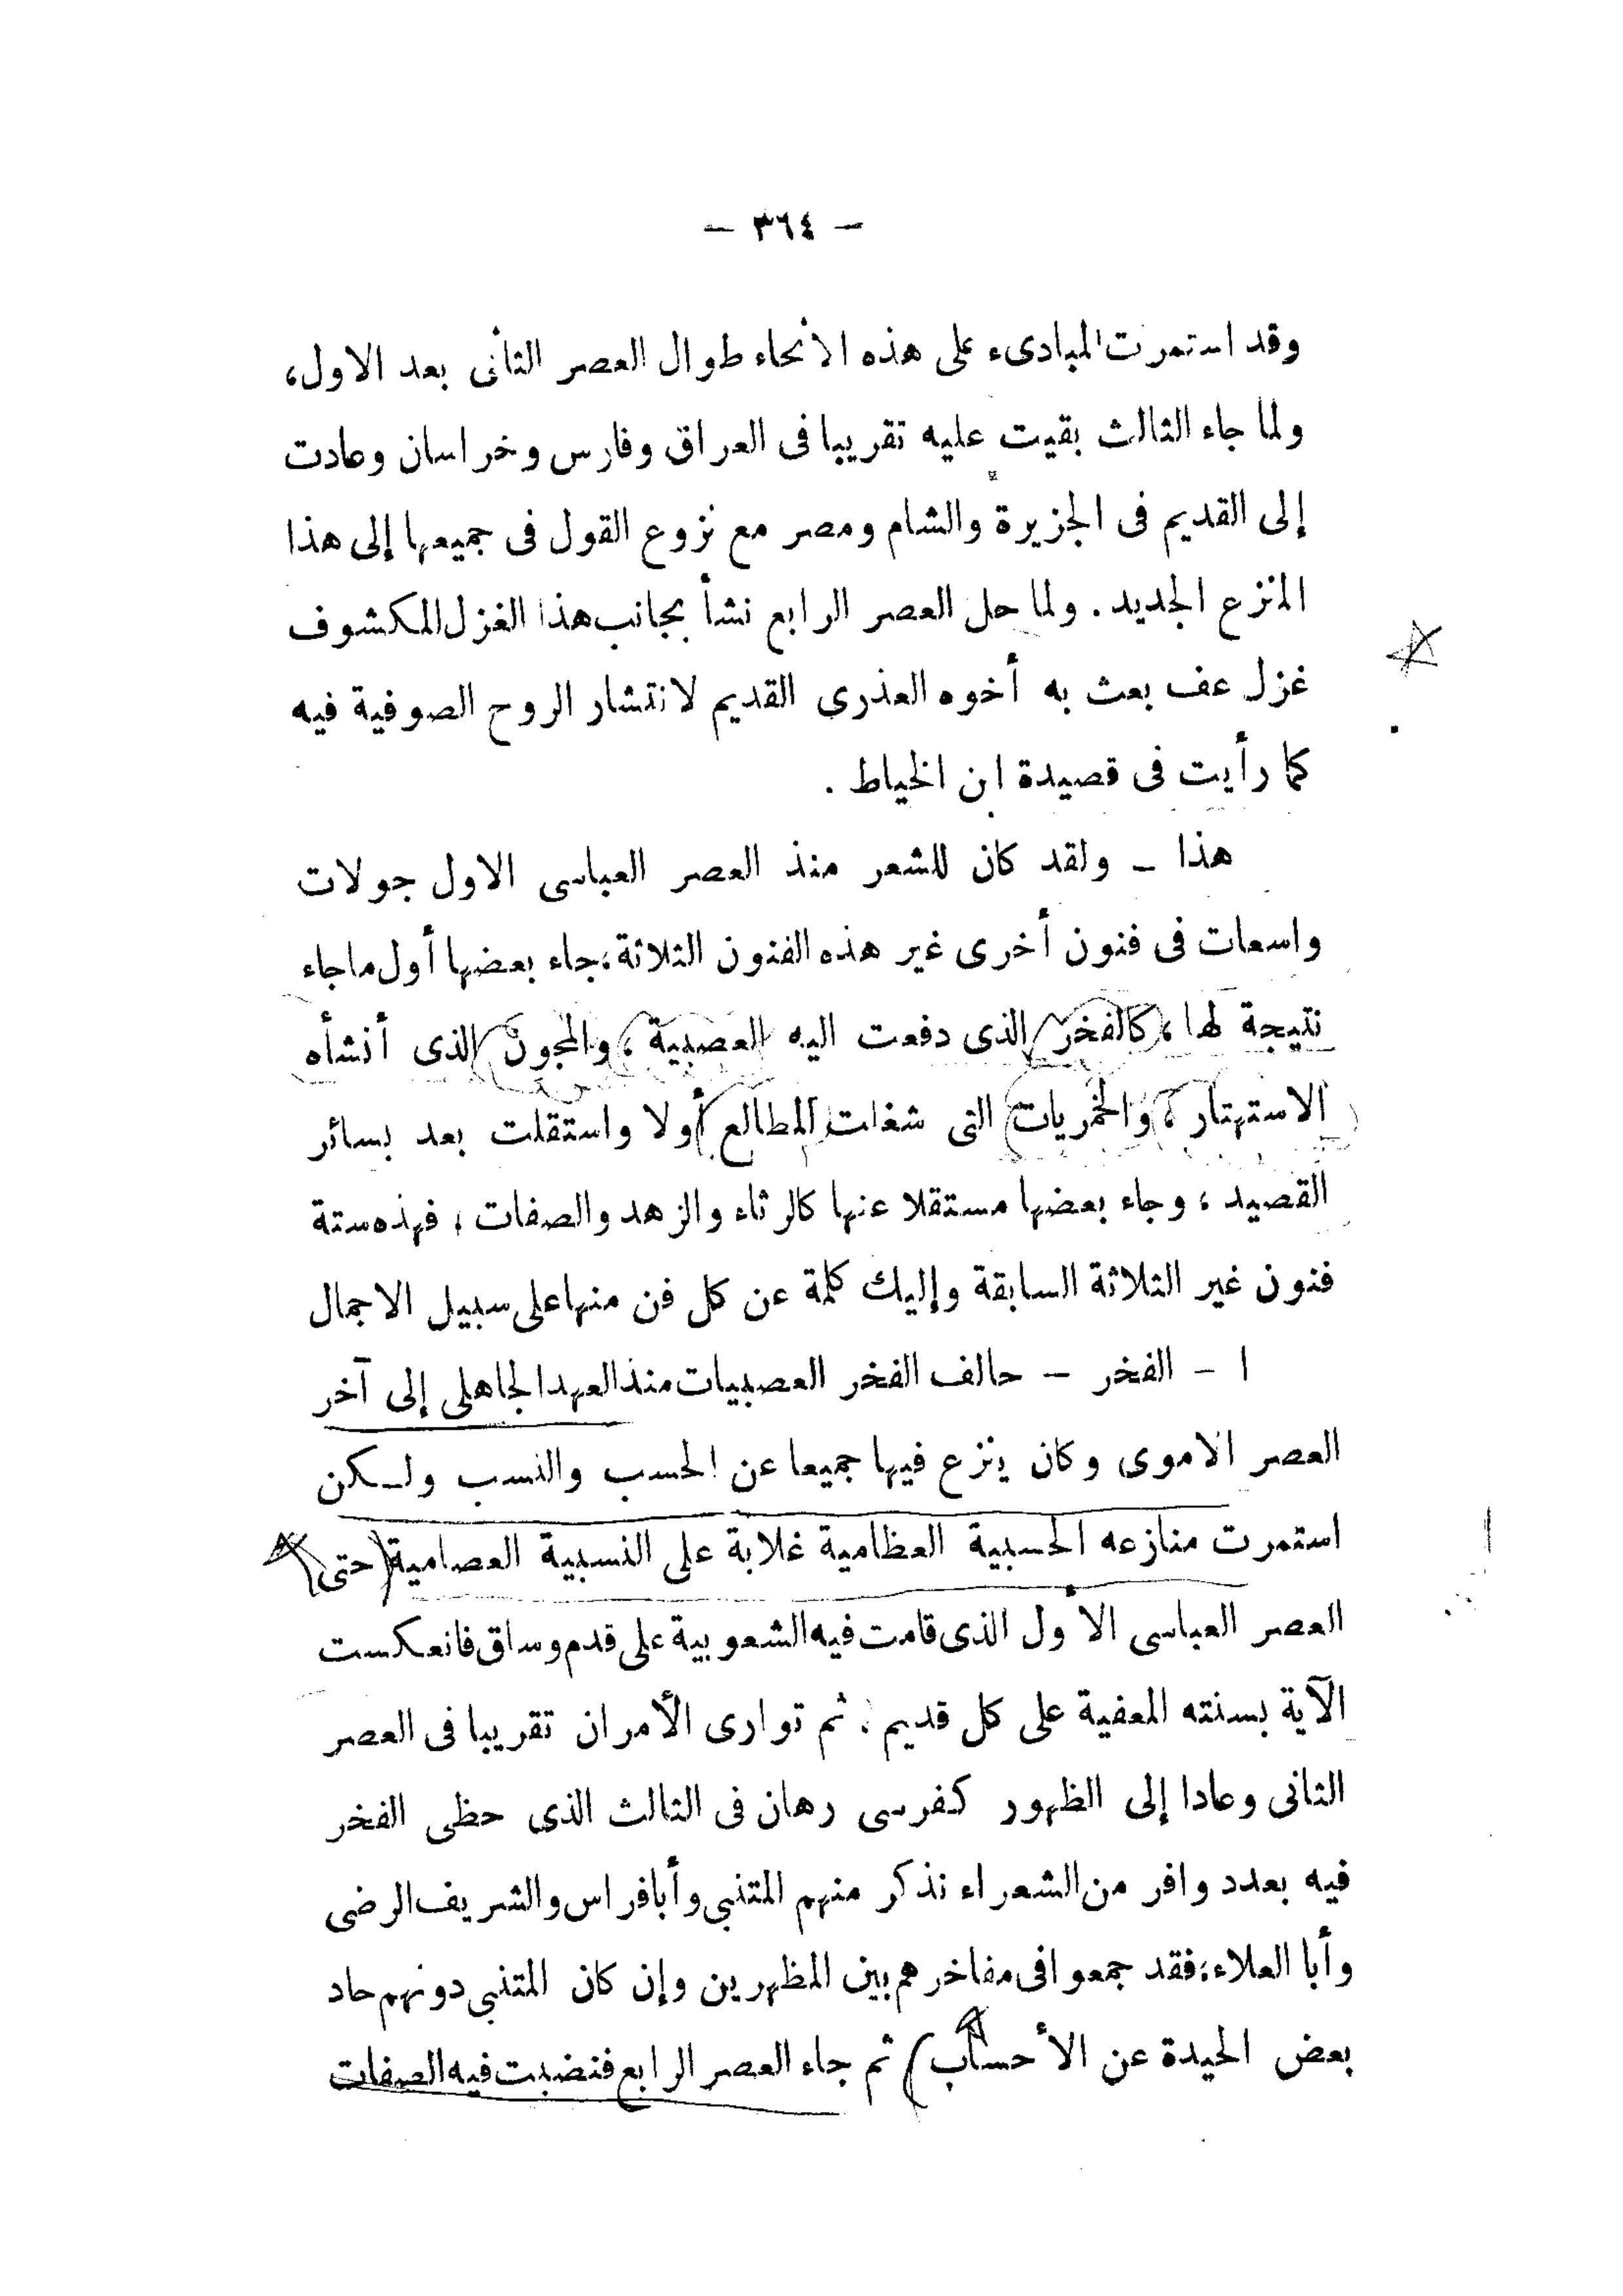 — ٣٦٤ —
وقد استمرت المبادىء على هذه الانحاء طوال العصر الثانى بعد الاول،
ولما جاء الثالث بقيت عليه تقريبا فى العراق وفارس وخراسان وعادت
إلى القديم فى الجزيرة والشام ومصر مع نزوع القول فى جميعها إلى هذا
المنزع الجديد . ولما حل العصر الرابع نشأ بجانب هذا الغزل المكشوف
غزل عف بعث به أخوه العذرى القديم لانتشار الروح الصوفية فيه
كما رأيت فى قصيدة ابن الخياط .
هذا ــ ولقد كان للشعر منذ العصر العباسى الاول جولات
واسعات فى فنون أخرى غير هذه الفنون الثلاثة، جاء بعضها أول ما جاء
نتيجة لها ، كالفخر الذى دفعت اليه العصبية ، والمجون الذى أنشأه
الاستهتار ، والخمريات التى شغلت المطالع أولا واستقلت بعد بسائر
القصيد ، وجاء بعضها مستقلا عنها كالرثاء والزهد والصفات ، فهذه ستة
فنون غير الثلاثة السابقة وإليك كلمة عن كل فن منها على سبيل الاجمال
١ – الفخر – حالف الفخر العصبيات منذ العهد الجاهلى إلى آخر
العصر الاموى وكان ينزع فيها جميعا عن الحسب والنسب ولكن
استمرت منازعه الحسبية العظامية غلابة على النسبية العصامية (حتى
العصر العباسى الأول الذى قامت فيه الشعوبية على قدم وساق فانعكست
الآية بسنته المعفية على كل قديم . ثم توارى الأمران تقريبا فى العصر
الثانى وعادا إلى الظهور كفرسى رهان فى الثالث الذى حظى الفخر
فيه بعدد وافر من الشعراء نذكر منهم المتنبى وأبا فراس والشريف الرضى
وأبا العلاء، فقد جمعوا فى مفاخرهم بين المظهرين وإن كان المتنبى دونهم حاد
بعض الحيدة عن الأحساب) ثم جاء العصر الرابع فنضبت فيه الصفات